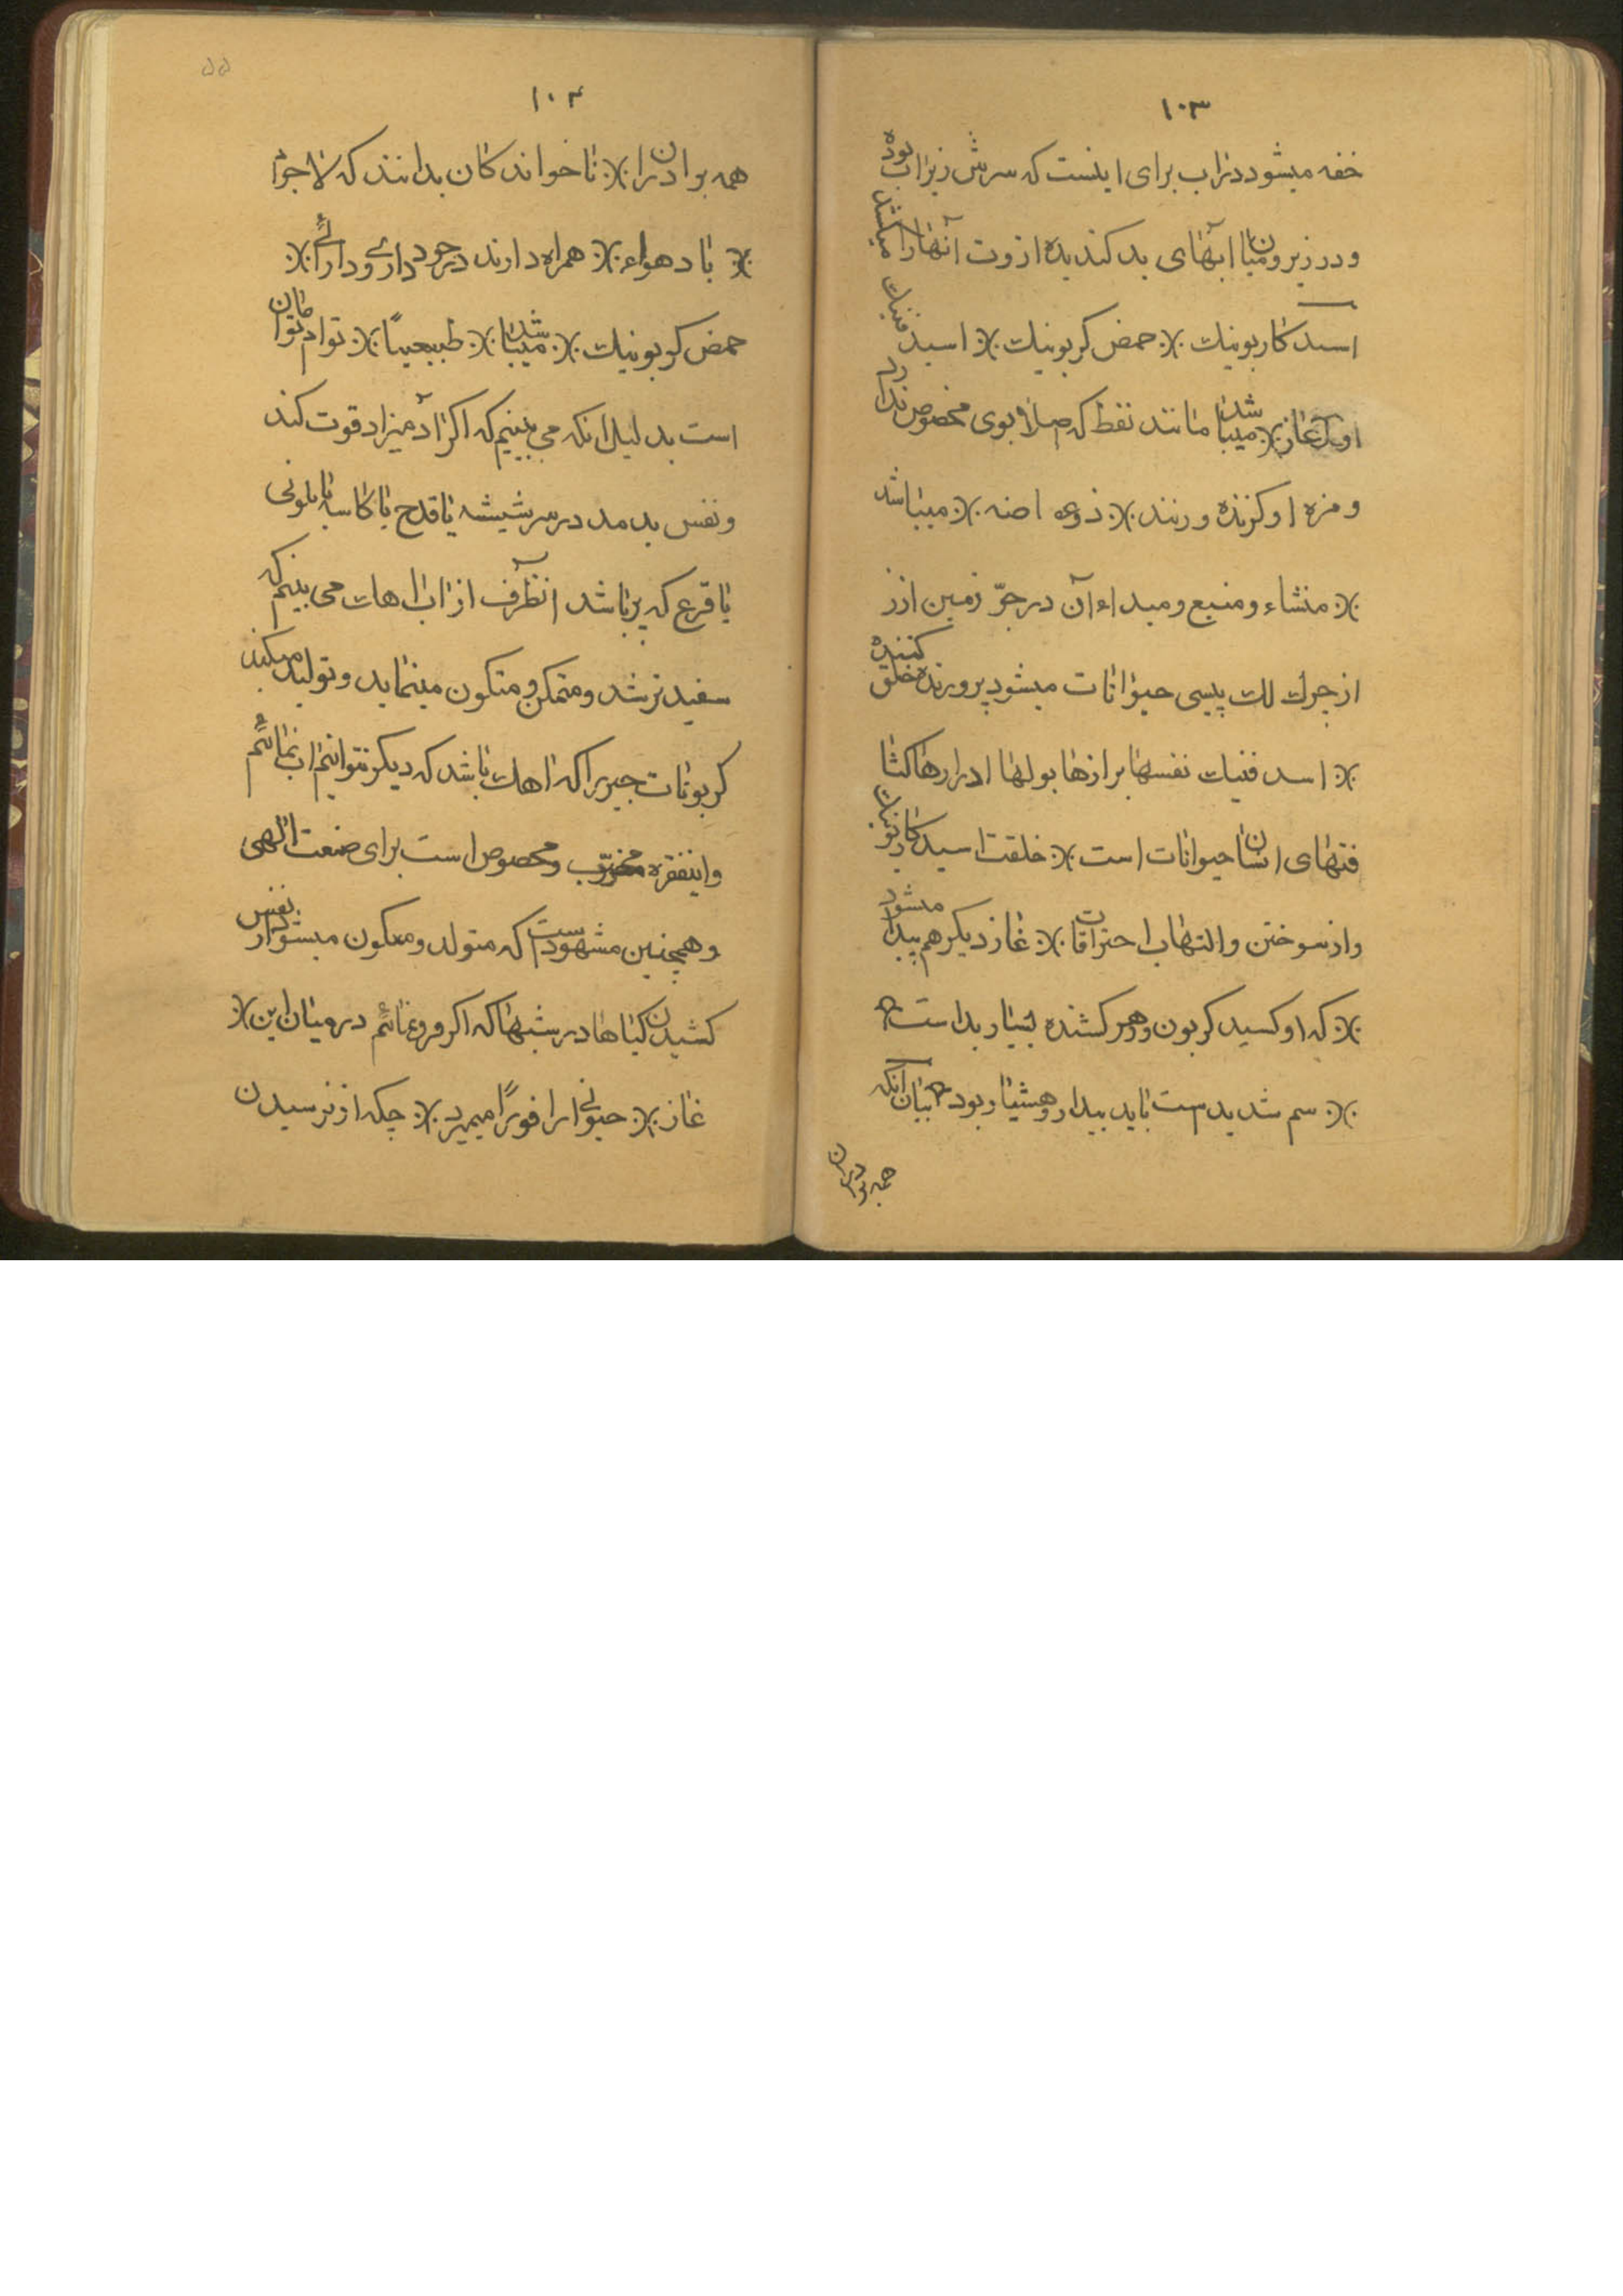 ۱۰۳
خفه میشود در اب برای اینست که سرش زیر اب بوده
و در زیر و میان ابهای بد کندیده ازوت آنها را میکشد
اسید کاربونیك ※ حمض کربونیك ※ اسید فنیك
اول غاز ※ میباشد مانند نفط که اصلا بوی مخصوص ندارد
و مزه او کزنده و رنند ※ ذوعه اضنه ※ میباشد
※ منشاء و منبع و مبداء آن در جوّ زمین از ز
از چرك لك پیسی حیوانات میشود پرورنده خلق کننده
※ اسد فنیك نفسها برازها بولها ادرارها کثا
فتهای انسان حیوانات است ※ خلقت اسید کاربونیك
و از سوختن و التهاب احتراقات ※ غاز دیکر هم پیدا میشود
※ که اوکسید کربون و هر کشنده بسیار بد است
※ سم شدید ست باید بیدار و هشیار بود بیان انکه
همه برادران
۱۰۴
همه برادران را ※ تا خوانندکان بدانند که اجزا
※ باد هواء ※ همراه دارند در خود داری و دارائی ※
حمض کربونیك ※ میباشد ※ طبیعیاً ※ توام توامان
است بدلیل انکه می بینیم که اکر آدمیزاد قوت کند
و نفس بدمد در سر شیشه یا قدح یا کاسه یا بلونی
یا قرع که پر باشد آنظرف از اب اهك می بینم که
سفید تر شد و متمکن و متکون مینماید و تولید میکند
کربونات جیر را که اهك باشد که دیکر نتوانیم اب نمائیم
و اینفقره و مخصوص است برای صنعت الهی
و همچنین مشهود است که متولد و متکون میشود از نفس
کشیدن کیاها در شبها که اکر فرو نمائیم در میان این ※
غاز ※ حیوانی را فوراً میمیرد ※ چکه از نرسیدن